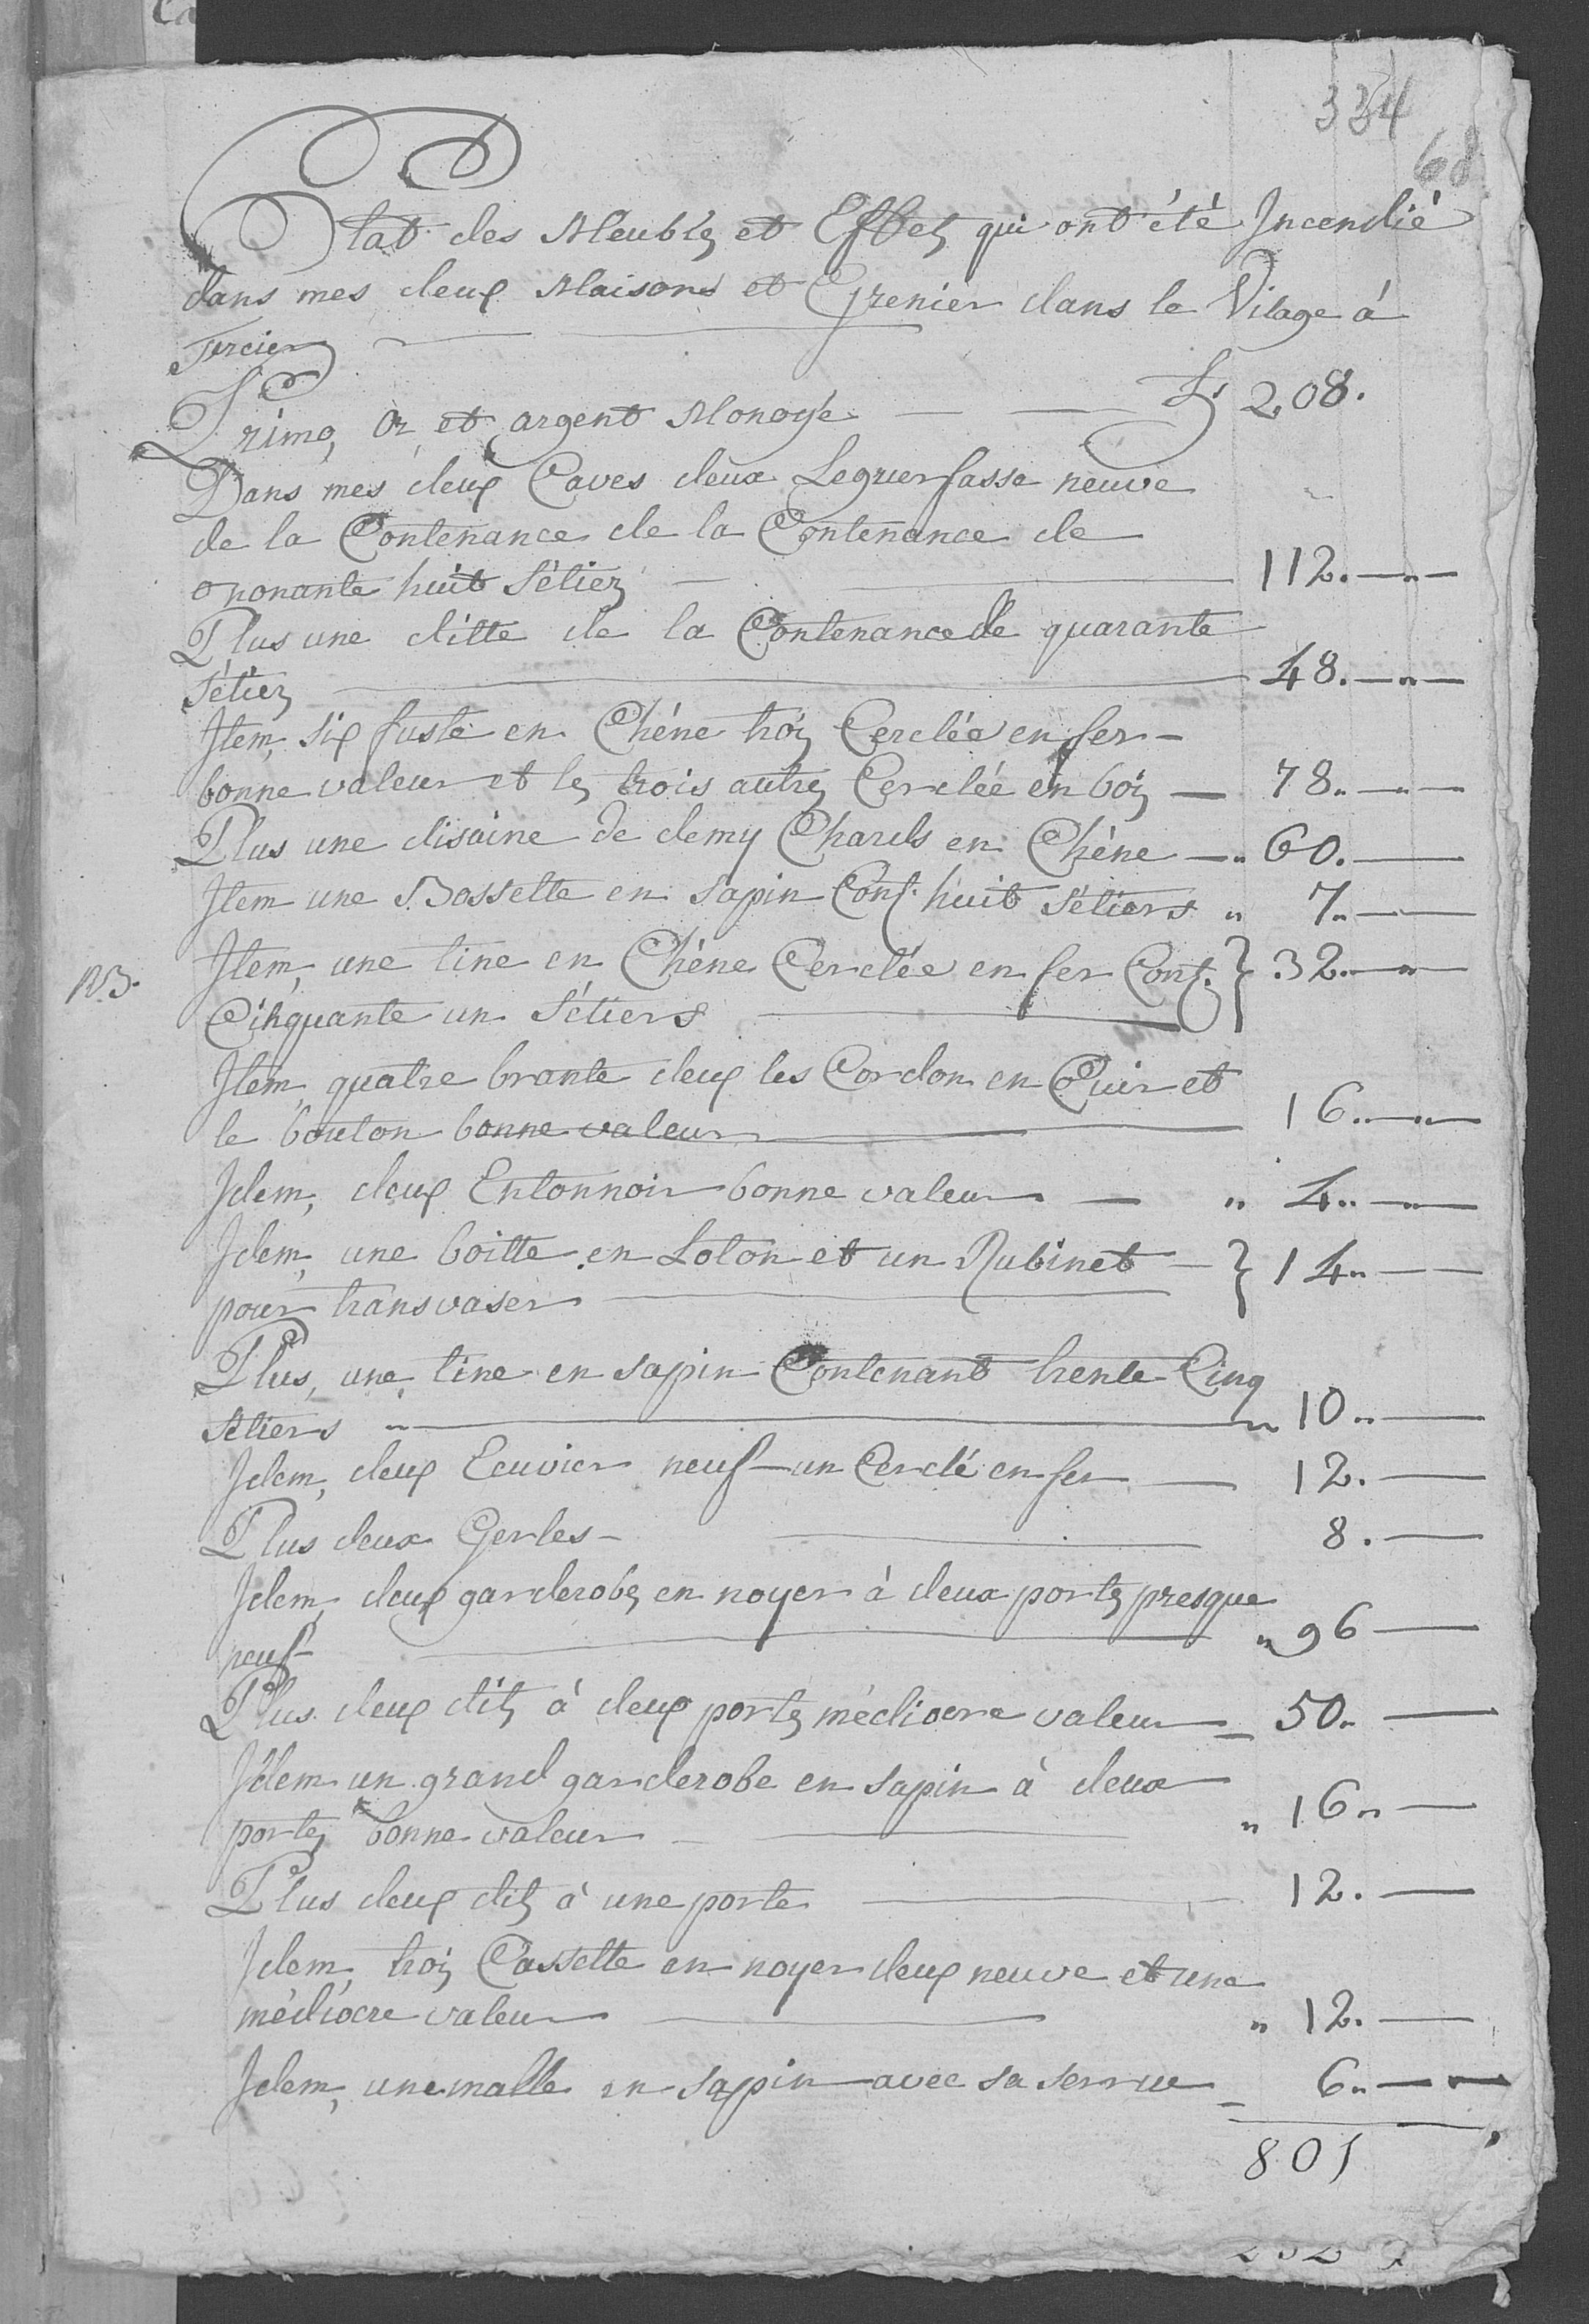 334
68
Etat des Meubles et Effets qui ont été Incendié
dans mes deux Maisons et Grenier dans le Vilage à
Fercier
Primo, Or et argent Monoye — — Ls 208.
Dans mes deux Caves deux Legrierfasse neuve
de la Contenance de la Contenance de
nonante huit Sétiers — 112.—"—
Plus une ditte de la Contenance de quarante
Sétiers — 48.—"—
Item, six fuste en Chéne trois Cerclée en fer –
bonne valeur et les trois autres Cerclée en bois — 78.—"—
Plus une disaine de demy Chards en Chéne —" 60.—
Item une Bossette en sapin Cont. huit Sétiers " 7"—
NB. Item, une tine en Chéne Cerclée en fer Cont. } 32.—"—
Cinquante un Sétiers
Item, quatre brante deux les Cordon en Cuir et
le bouton bonne valeur — 16.—"—
Idem, deux Entonnoir bonne valeur — " 4.—"—
Idem, une boitte en Loton et un Rubinet — } 14"—
pour transvaser
Plus, une tine en sapin Contenant trente Cinq
Setiers " — " 10"—
Idem, deux Ecuvier neuf un Cerclé en fer — 12.—
Plus deux Gerles – — 8.—
Idem, deux garderobes en noyer à deux portes presque
neuf — " 96 —
Plus deux dits à deux portes médiocre valeur — 50. —
Idem un grand garderobe en sapin à deux
portes bonne valeur — " 16"—
Plus deux dits à une porte — 12.—
Idem, trois Cassette en noyer deux neuve et une
médiocre valeur — " 12.—
Idem, une malle en sapin avec sa serrue — 6"—
801